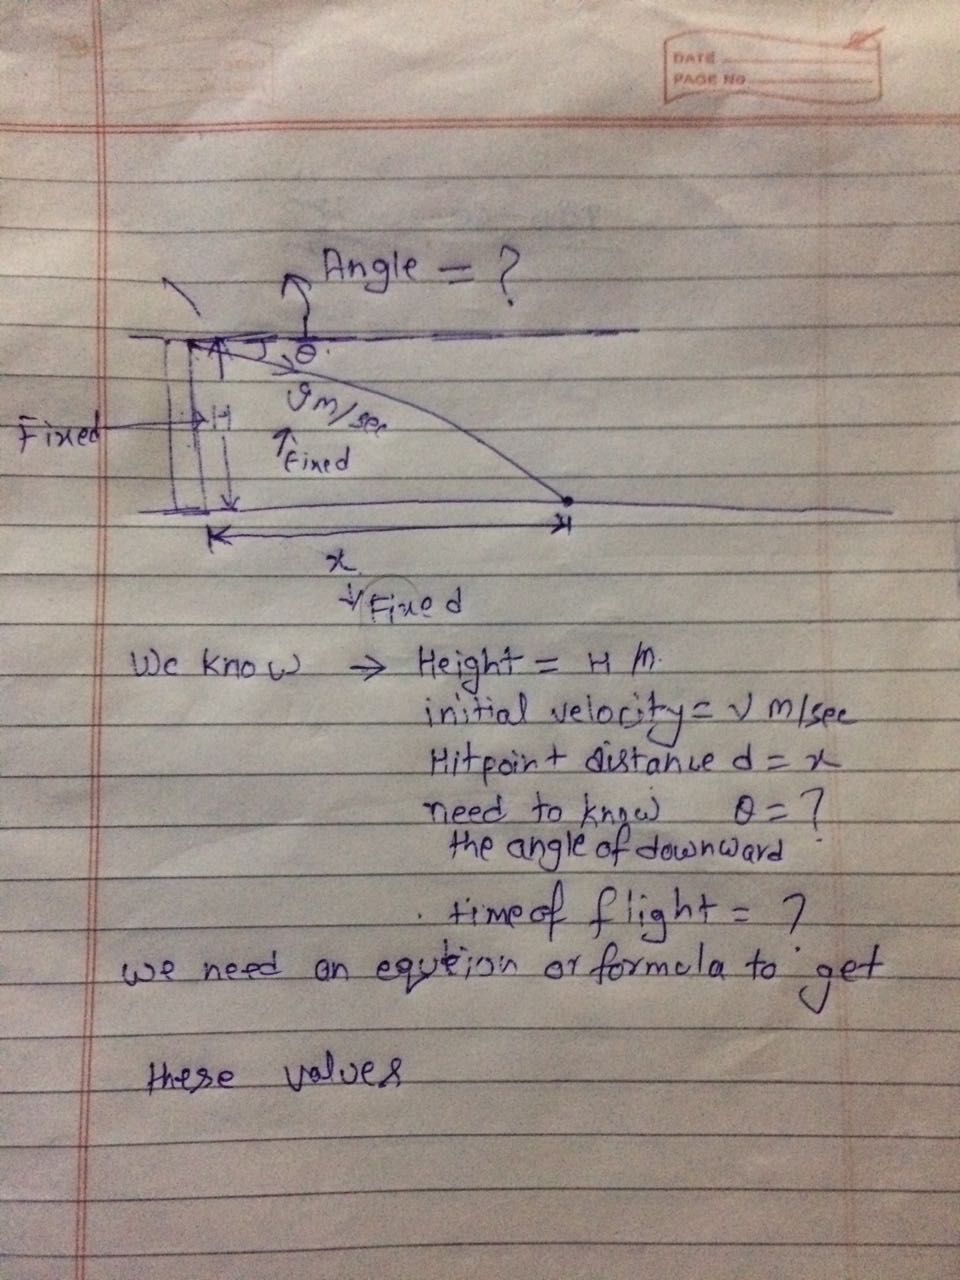 DATE
PAGE NO
Angle = ?
θ
v m/sec
Fixed
H
Fixed
x
Fixed
We know → Height = H m.
initial velocity = v m/sec
Hitpoint distance d = x
need to know θ = ?
the angle of downward
time of flight = ?
we need an equteion or formula to get
these values